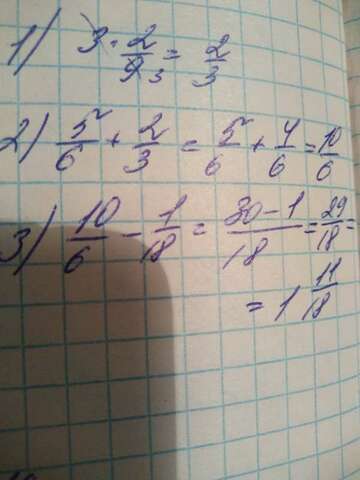 1) 3 · 2/9 3 = 2/3
2) 5/6 + 2/3 = 5/6 + 4/6 = 10/6
3) 10/6 - 1/18 = 30-1/18 = 29/18 =
= 1 11/18